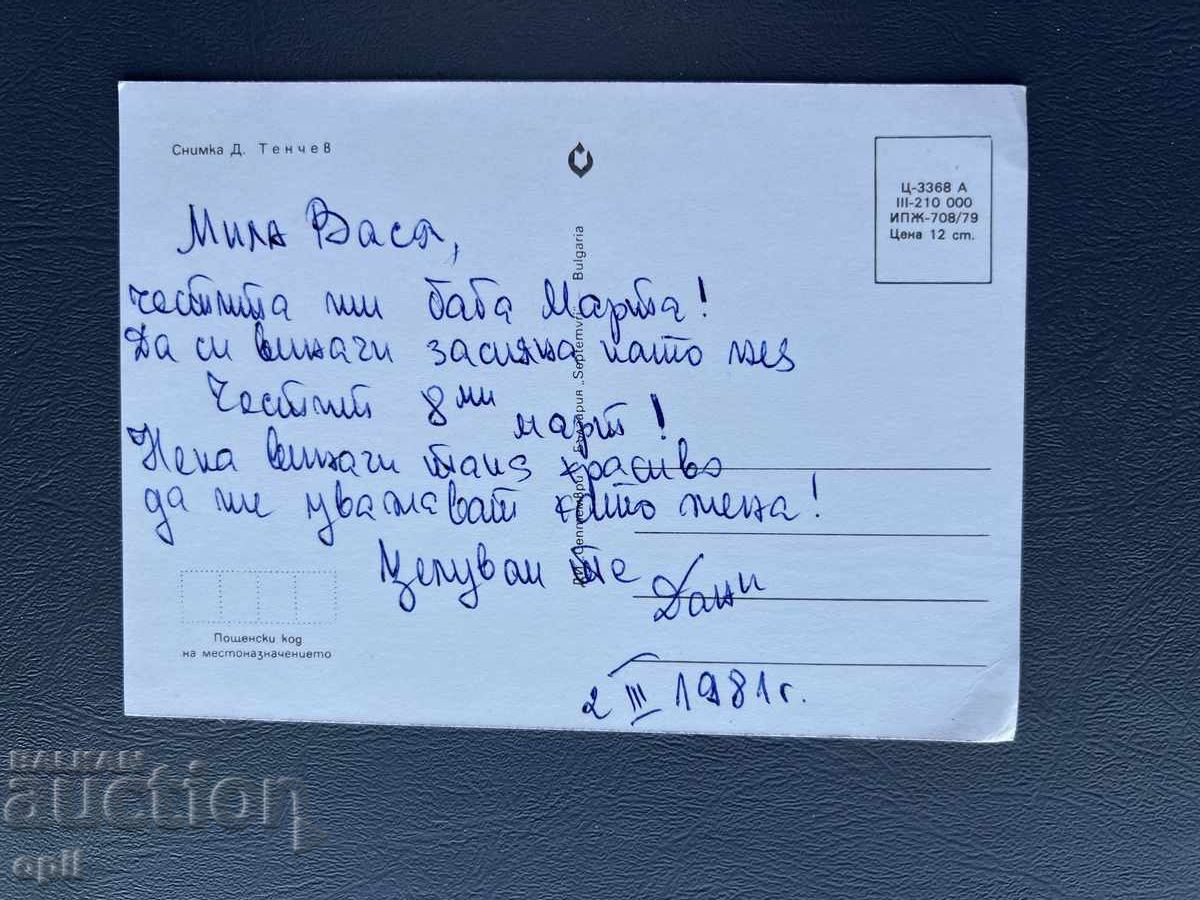 Снимка Д. Тенчев
Ц-3368 А
III-210 000
ИПЖ-708/79
Цена 12 ст.
Мила Вася,
честита ти баба Марта!
Да си винаги засмяна като нея
Честит 8ми
март!
Нека винаги така красиво
да те уважават като жена!
Целувам те
Дани
2 III 1981 г.
ДИ „Септември“, България „Septemvri“ Bulgaria
Пощенски код
на местоназначението
BALKAN
auction
opll